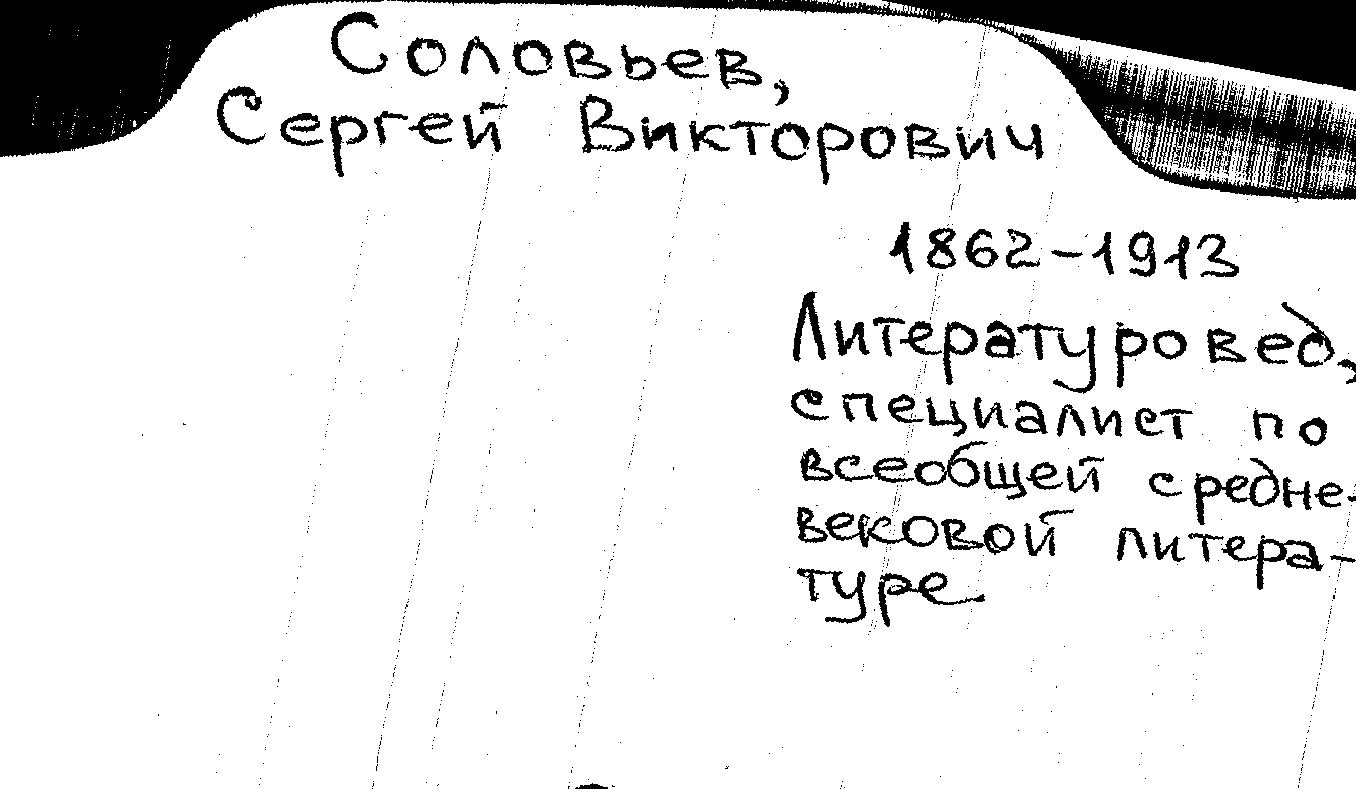 Соловьев,
Сергей Викторович
1862-1913
Литературовед,
специалист по
всеобщей средне-
вековой литера-
туре.